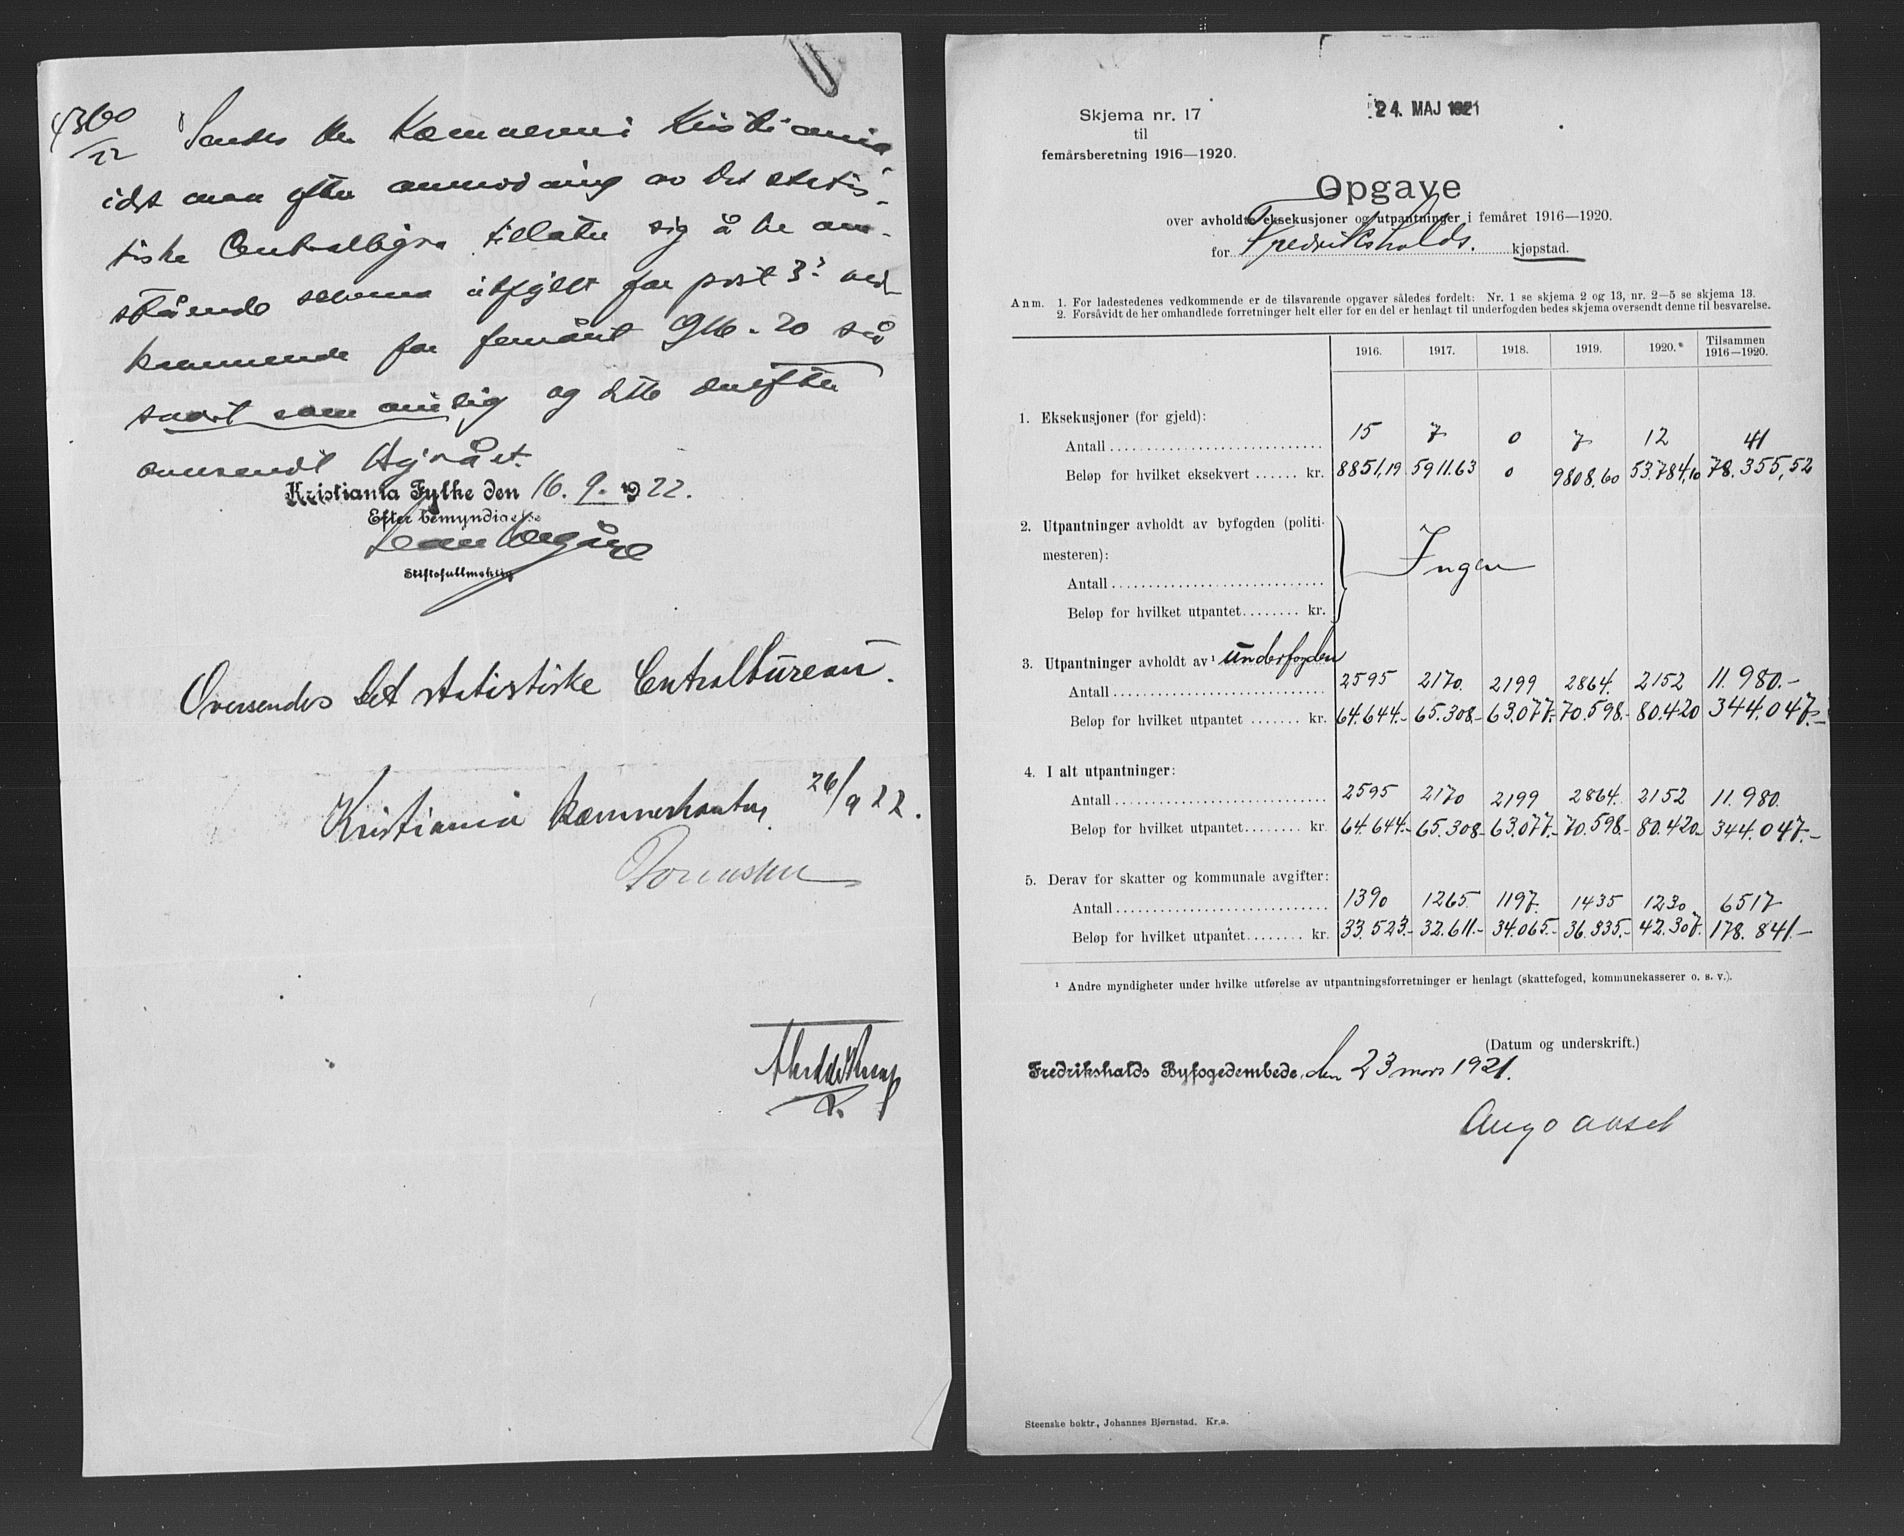 4360
22
Sendes hr Kæmneren i Kristiania
idet man efter anmodning av Det statis-
tiske Centralbyrå tillater sig å be om-
stående schema utfyllt for post 3's ved-
kommende for femåret 916-20 så
snart som mulig og dette derefter
omsendt Hyrået.
Kristiania Fylke den 16. 9. 1922.
Efter bemyndigelse
Stiftsfullmektig
Oversendes Det statistiske Centralbureau.
Kristiania kæmnerkontor, 26/9 22.
Skjema nr. 17
til
femårsberetning 1916—1920.
24. MAJ 1921
Opgave
over avholdte eksekusjoner og utpantninger i femåret 1916—1920.
for Fredrikshalds. kjøpstad.
Anm. 1. For ladestedenes vedkommende er de tilsvarende opgaver således fordelt: Nr. 1 se skjema 2 og 13, nr. 2—5 se skjema 13.
2. Forsåvidt de her omhandlede forretninger helt eller for en del er henlagt til underfogden bedes skjema oversendt denne til besvarelse.
1916. 1917. 1918. 1919. 1920. Tilsammen 1916—1920.
1. Eksekusjoner (for gjeld):
Antall 15 7 0 7 12 41
Beløp for hvilket eksekvert kr. 8851,19 5911.63 0 9808.60 53.784,10 78.355,52
2. Utpantninger avholdt av byfogden (politi-
mesteren):
Antall
Ingen
Beløp for hvilket utpantet kr.
3. Utpantninger avholdt av ¹ underfogden
Antall 2595 2170. 2199 2864. 2152 11.980.-
Beløp for hvilket utpantet kr. 64.644.- 65.308.- 63.077.- 70.598.- 80.420 344.047.-
4. I alt utpantninger:
Antall 2595 2170 2199 2864. 2152 11.980.
Beløp for hvilket utpantet kr. 64.644.- 65.308.- 63.077.- 70.598.- 80.420.- 344.047.-
5. Derav for skatter og kommunale avgifter:
Antall 1390 1265. 1197. 1435 1230 6517
Beløp for hvilket utpantet kr. 33.523.- 32.611.- 34.065.- 36.335.- 42.307. 178.841.-
¹ Andre myndigheter under hvilke utførelse av utpantningsforretninger er henlagt (skattefoged, kommunekasserer o. s. v.).
(Datum og underskrift.)
Fredrikshalds Byfogedembede, den 23 mars 1921.
Steenske boktr., Johannes Bjørnstad. Kr.a.